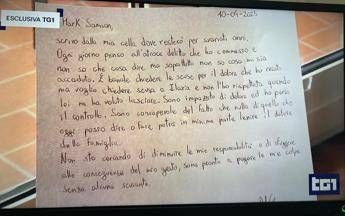 ESCLUSIVA TG1
10-04-2025
Mark Samson
scrivo dalla mia cella dove resterò per svariati anni.
Ogni giorno penso all'atroce delitto che ho commesso e
non so che cosa dire ma soprattutto non so cosa mi sia
accaduto. È banale chiedere le scuse per il dolore che ho creato
ma voglio chiedere scusa a Ilaria e non l'ho rispettata quando
lei mi ha voluto lasciare. Sono impazzito di dolore ed ho perso
il controllo. Sono consapevole del fatto che nulla di quello che
oggi posso dire o fare potrà in minima parte lenire il dolore
della famiglia.
Non sto cercando di diminuire le mie responsabilità o di sfuggire
alle conseguenze del mio gesto, sono pronto a pagare le mie colpe
senza alcuna scusante.
TG1